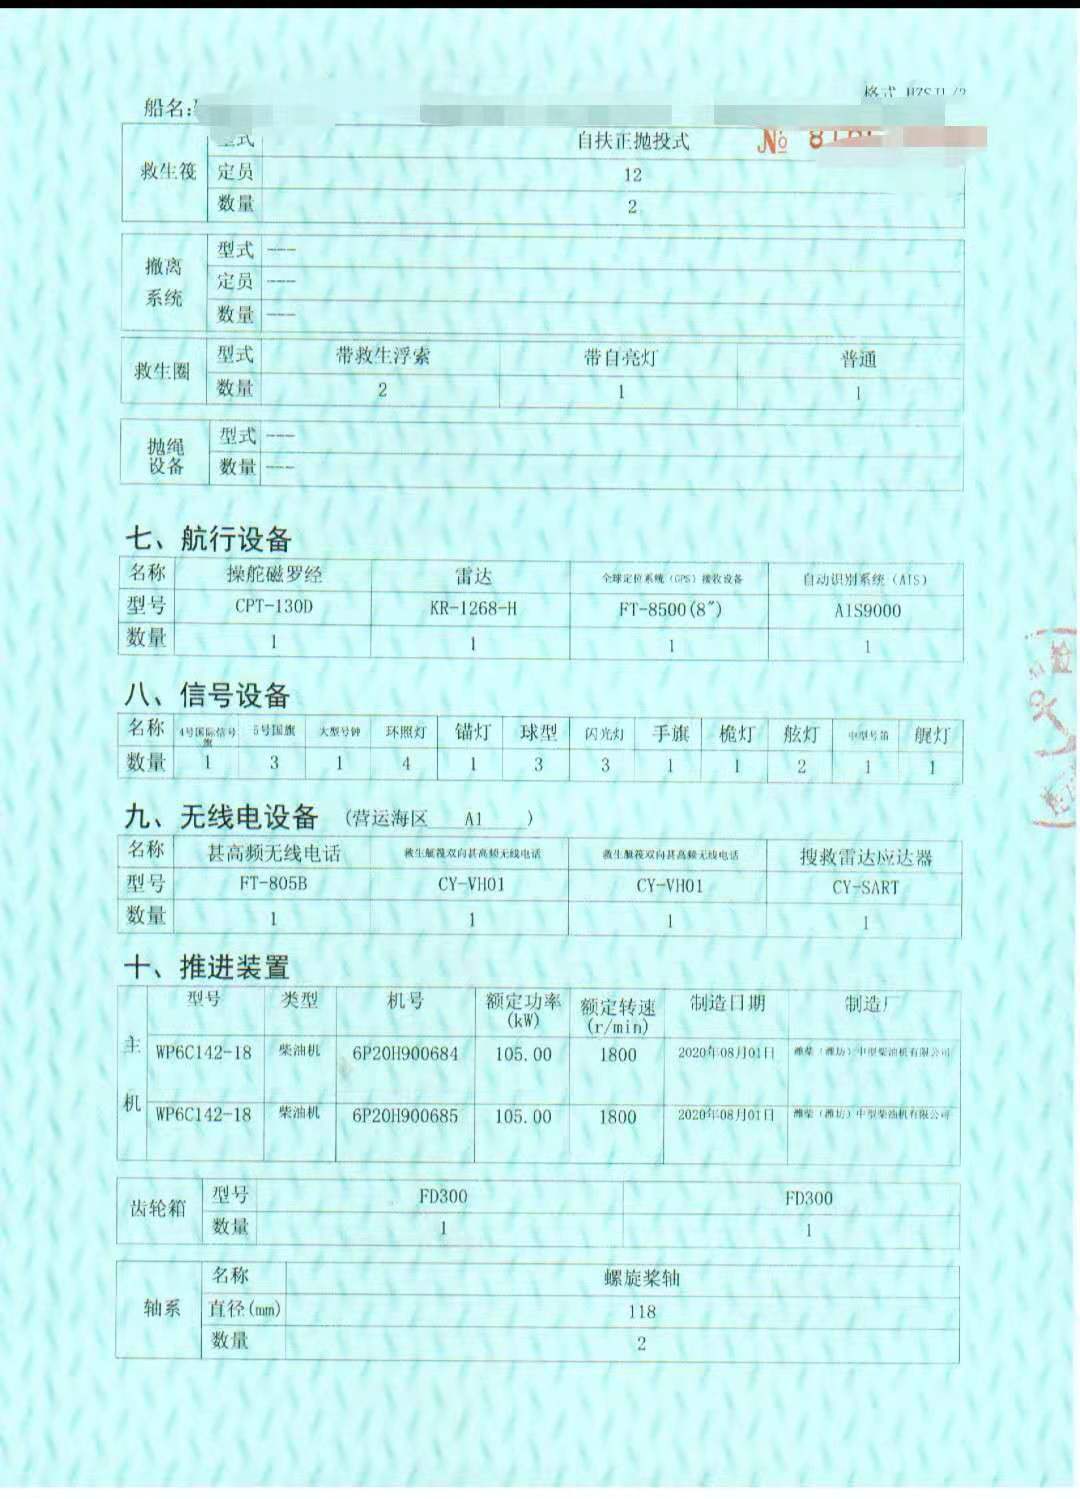 船名:
型式 自扶正抛投式 № 81
救生筏 定员 12
数量 2
型式 ---
撤离系统 定员 ---
数量 ---
救生圈 型式 带救生浮索 带自亮灯 普通
数量 2 1 1
抛绳设备 型式 ---
数量 ---
七、航行设备
名称 操舵磁罗经 雷达 全球定位系统（GPS）接收设备 自动识别系统（AIS）
型号 CPT-130D KR-1268-H FT-8500(8″) AIS9000
数量 1 1 1 1
八、信号设备
名称 4号国际信号旗 5号国旗 大型号钟 环照灯 锚灯 球型 闪光灯 手旗 桅灯 舷灯 中型号笛 艉灯
数量 1 3 1 4 1 3 3 1 1 2 1 1
九、无线电设备 (营运海区 A1 )
名称 甚高频无线电话 救生艇筏双向甚高频无线电话 救生艇筏双向甚高频无线电话 搜救雷达应达器
型号 FT-805B CY-VH01 CY-VH01 CY-SART
数量 1 1 1 1
十、推进装置
主机 型号 类型 机号 额定功率(kW) 额定转速(r/min) 制造日期 制造厂
WP6C142-18 柴油机 6P20H900684 105.00 1800 2020年08月01日 潍柴（潍坊）中型柴油机有限公司
WP6C142-18 柴油机 6P20H900685 105.00 1800 2020年08月01日 潍柴（潍坊）中型柴油机有限公司
齿轮箱 型号 FD300 FD300
数量 1 1
名称 螺旋桨轴
轴系 直径(mm) 118
数量 2